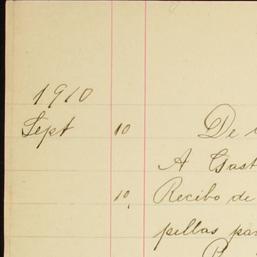 1910
Sept 10 De
A Gast
10, Recibo de
pillas par